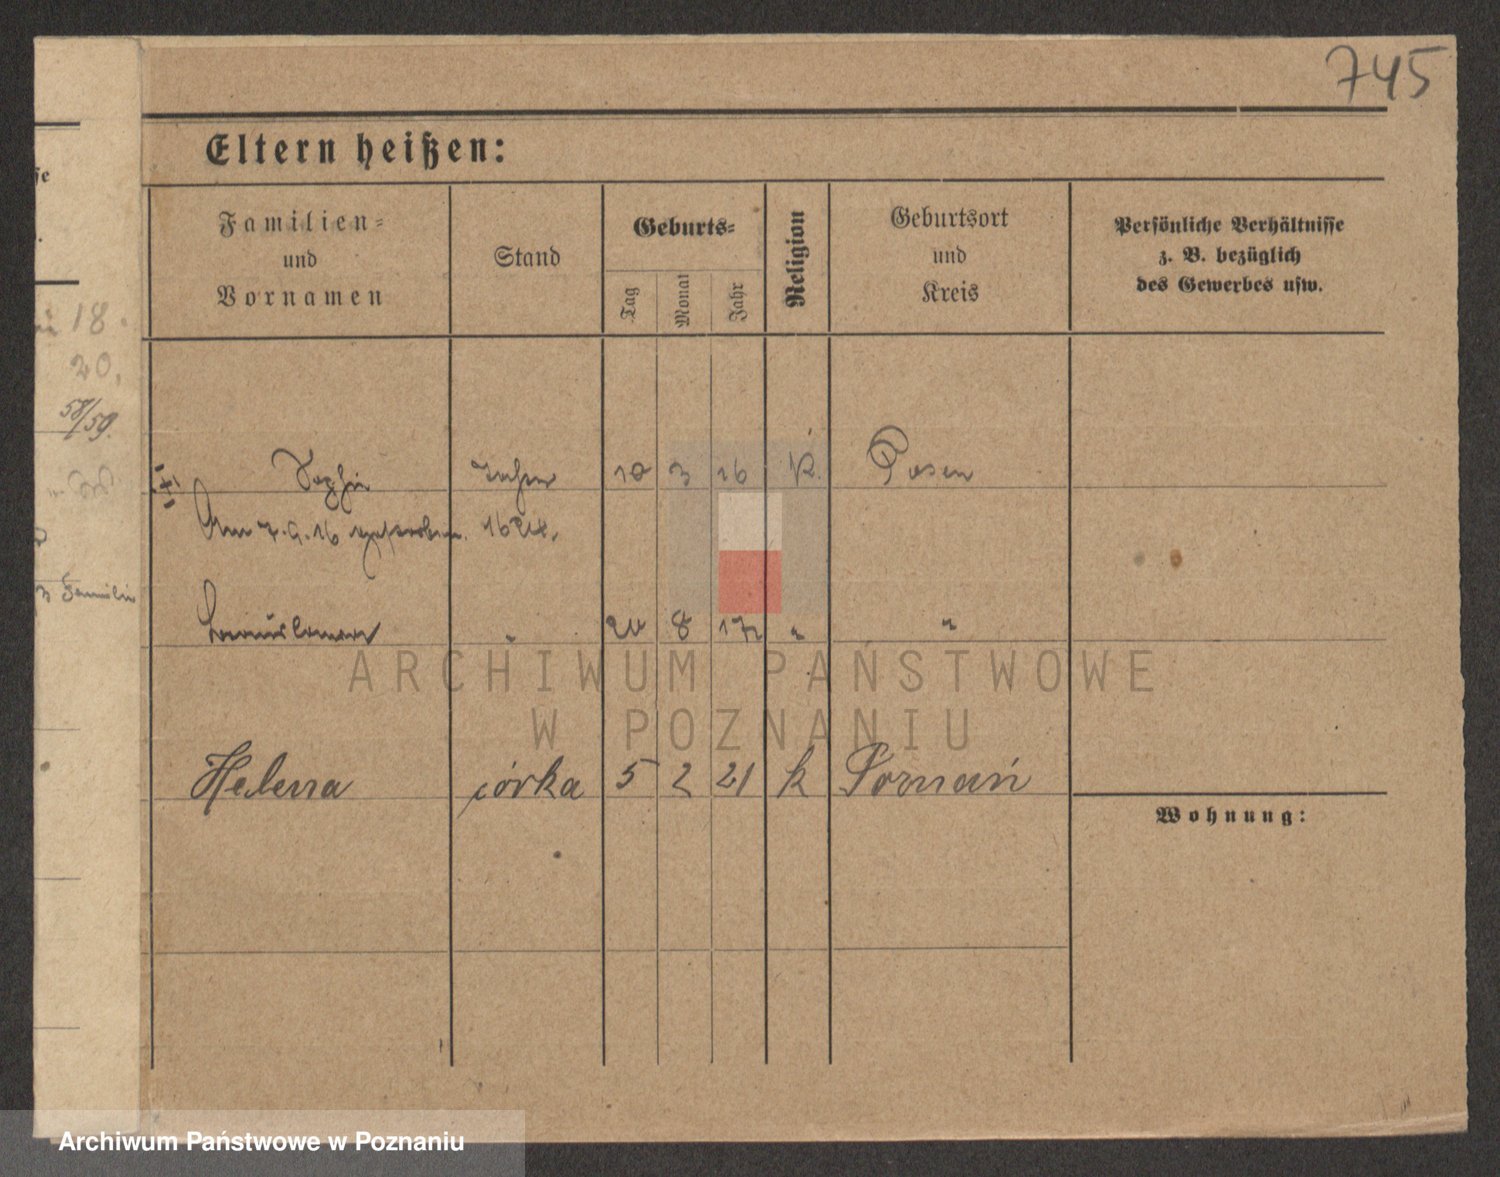 745
Eltern heißen:
Familien-
und
Vornamen
Stand
Geburts-
Tag
Monat
Jahr
Religion
Geburtsort
und
Kreis
Persönliche Verhältnisse
z. B. bezüglich
des Gewerbes usw.
18.
20.
58/59.
Familie
Sophie 10 3 16 K. Posen
Am 7.9.16 verstorben.
" 20 8 17 " "
Helena córka 5 2 21 k Poznań
Wohnung:
ARCHIWUM PAŃSTWOWE
W POZNANIU
Archiwum Państwowe w Poznaniu